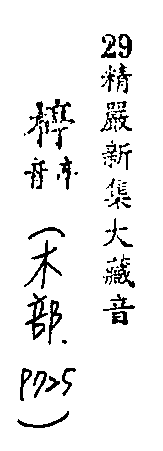 29精嚴新集大藏音
音
(木部.
P725)